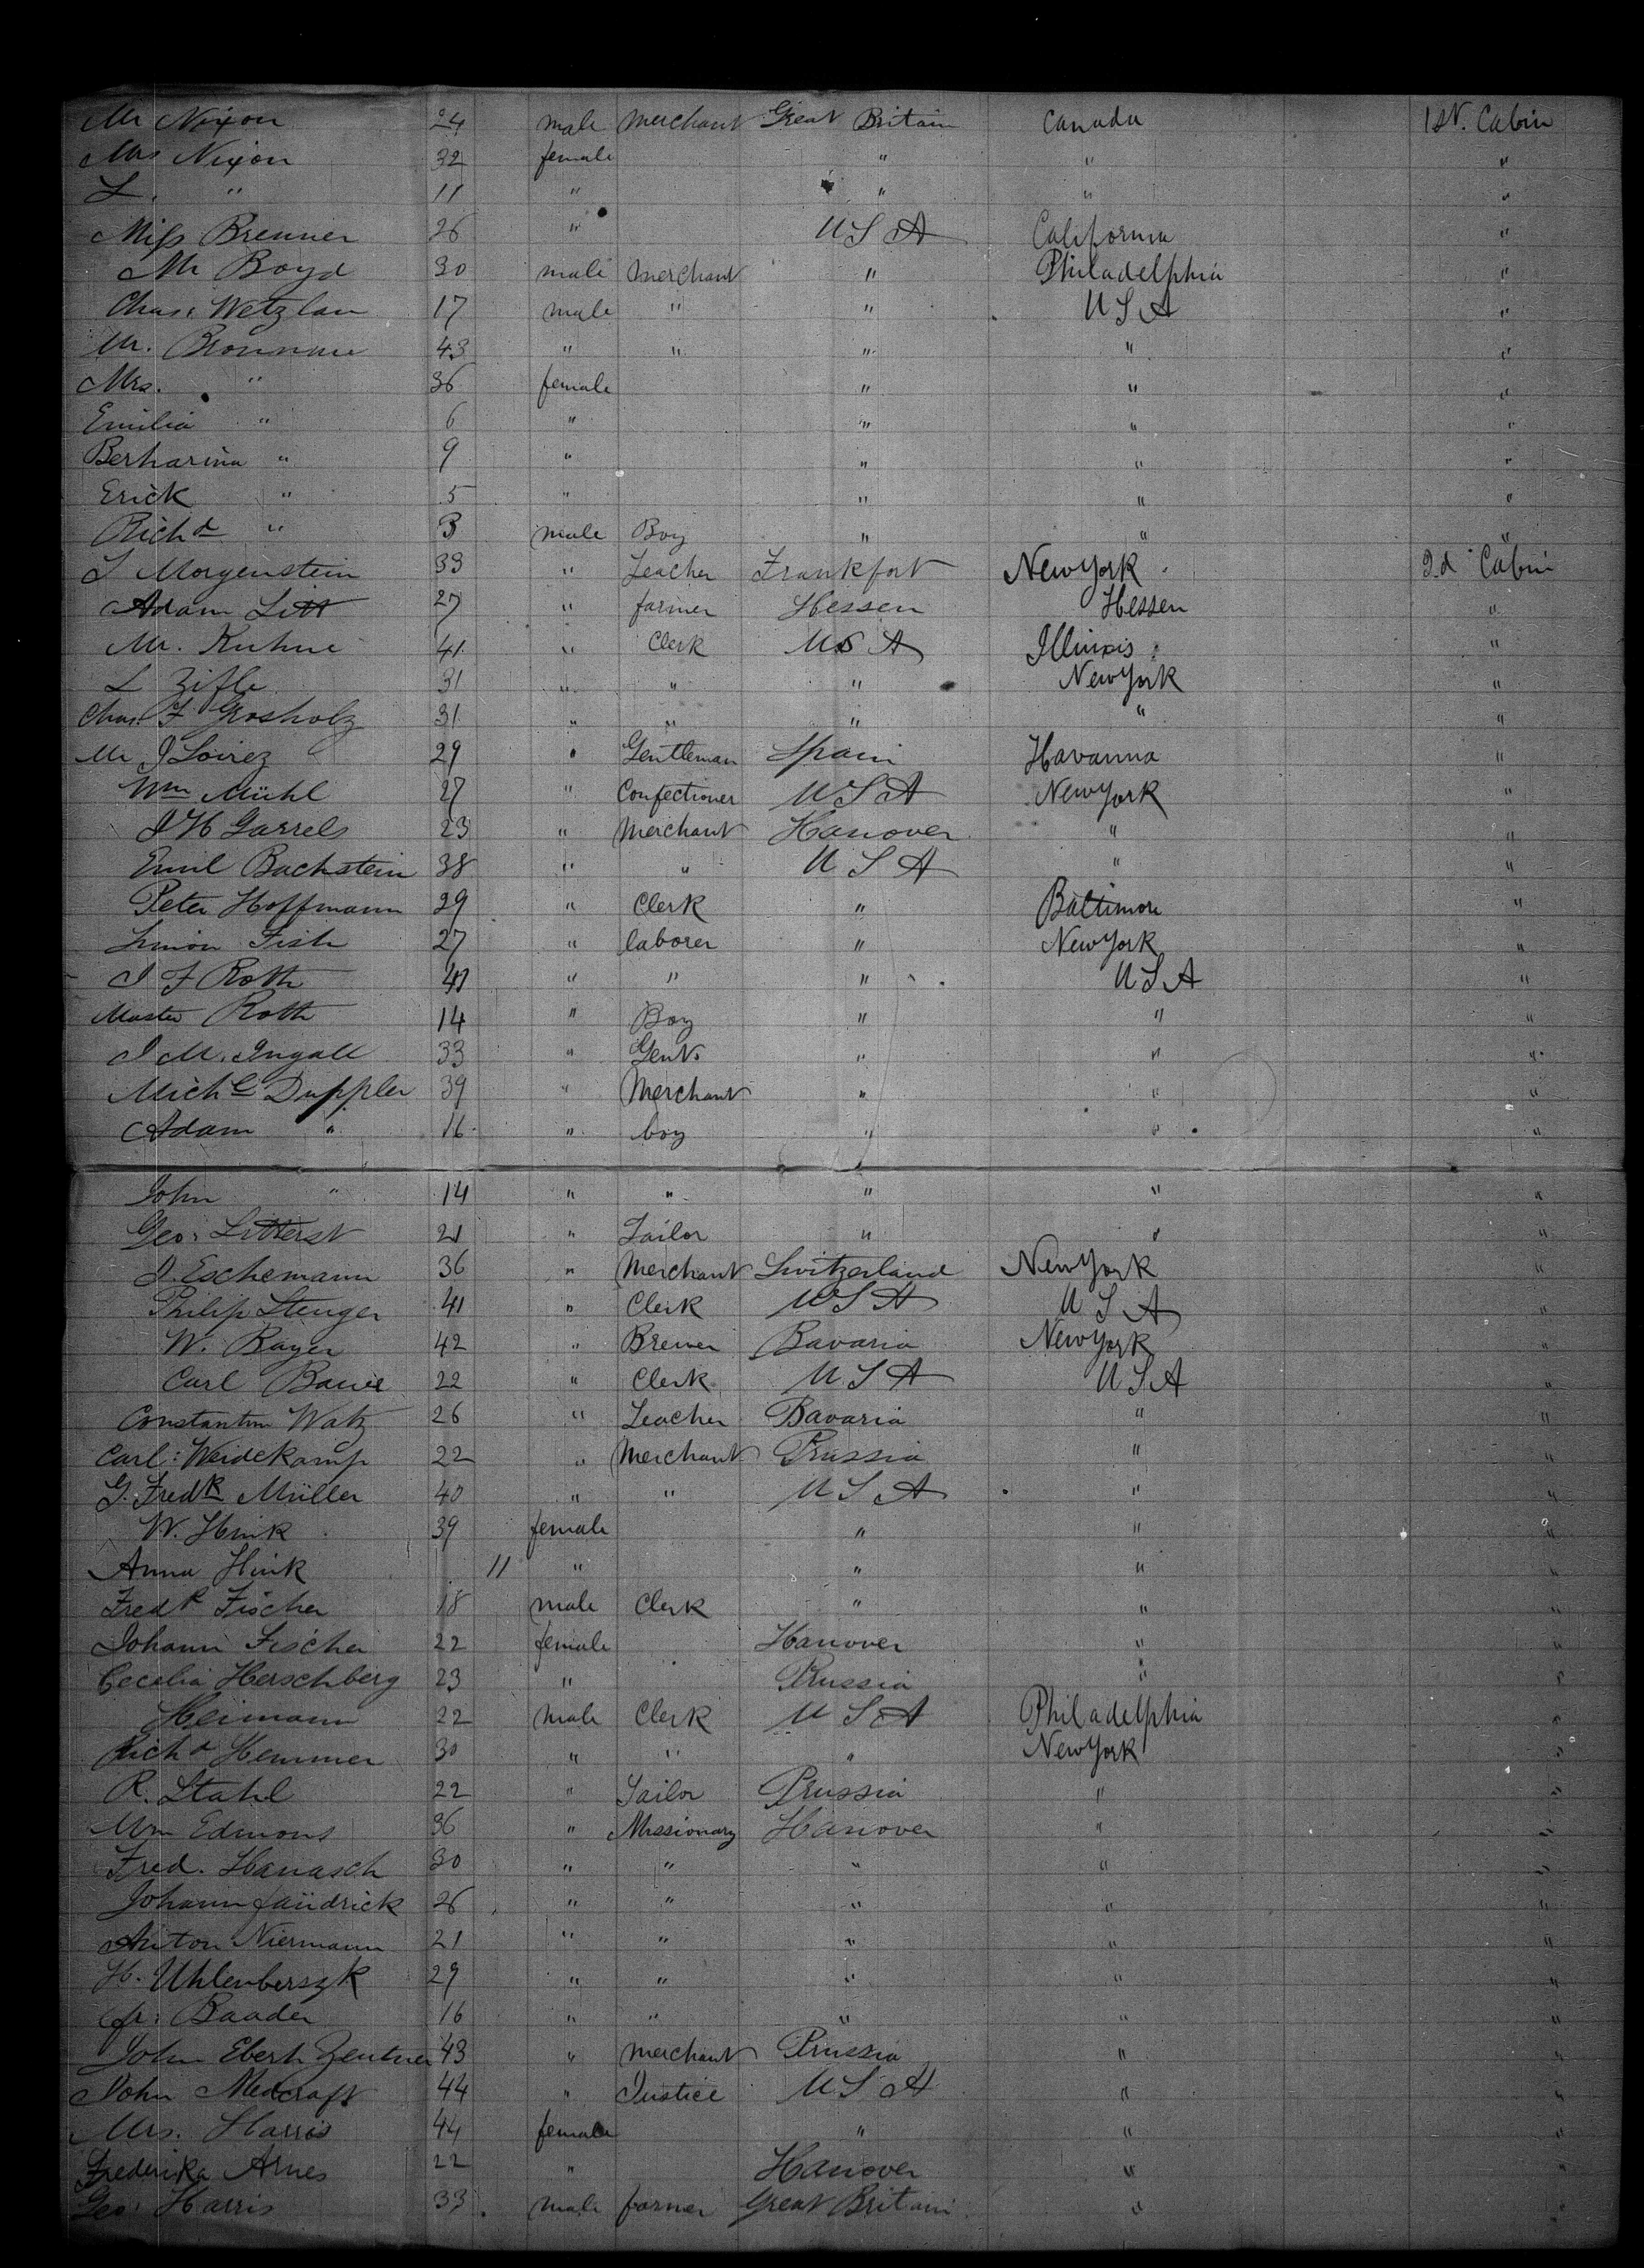 Mr Nixon 24 male Merchant Great Britain Canada 1st. Cabin
Mrs Nixon 32 female " " "
L. " 11 " " " "
Miss Brenner 26 " U S A California "
Mr Boyd 30 male Merchant " Philadelphia "
Chas: Wetzlau 17 male " " U S A "
Mr. 43 " " " " "
Mrs. " 36 female " " "
Emilia " 6 " " " "
Bertharina " 9 " " " "
Erick " 5 " " " "
Richd " 3 male Boy " " "
L Morgenstein 33 " Teacher Frankfort New York 2d Cabin
Adam Litt 27 " farmer Hessen Hessen "
Mr. Kuhne 41 " Clerk U S A Illinois "
L Zifle 31 " " " New York "
Chas. F Grosholz 31 " " " " "
Mr J Loirez 29 " Gentleman Spain Havanna "
Wm Mühl 27 " Confectioner U S A New York "
J H Garrels 23 " Merchant Hanover " "
Emil Bachstein 38 " " U S A " "
Peter Hoffmann 29 " Clerk " Baltimore "
Simon Fish 27 " laborer " New York "
J F Roth 41 " " " U S A "
Master Roth 14 " Boy " " "
J M. Ingall 33 " Gent. " " "
Michl Duppler 39 " Merchant " " "
Adam " 16 " boy " " "
John " 14 " " " " "
Geo: Litterst 21 " Tailor " " "
J. Eschemann 36 " Merchant Switzerland New York "
Philip Stenger 41 " Clerk U S A U S A "
W. Bayer 42 " Brewer Bavaria New York "
Carl Bauer 22 " Clerk U S A U S A "
Constantin Watz 26 " Teacher Bavaria " "
Carl: Weidekamp 22 " Merchant Prussia " "
G. Fredk Müller 40 " " U S A " "
W. Hink 39 female " " "
Anna Hink 11 " " " "
Fredk Fischer 18 male Clerk " " "
Johann Fischer 22 female Hanover " "
Cecelia Herschberg 23 " Prussia " "
Heimann 22 male Clerk U S A Philadelphia "
Richd Hemmer 30 " " " New York "
R. Stahl 22 " Tailor Prussia " "
Wm Edmons 36 " Missionary Hanover " "
Fred. Hanasch 30 " " " " "
Johann Jaüdrick 26 " " " " "
Anton Niermann 21 " " " " "
H. Uhlenberszk 29 " " " " "
Baader 16 " " " " "
John Eberh Zentner 43 " merchant Prussia " "
John Medcraft 44 " Justice U S A " "
Mrs. Harris 44 female " " "
Frederika Arnes 22 " Hanover " "
Geo: Harris 33 male farmer Great Britain " "